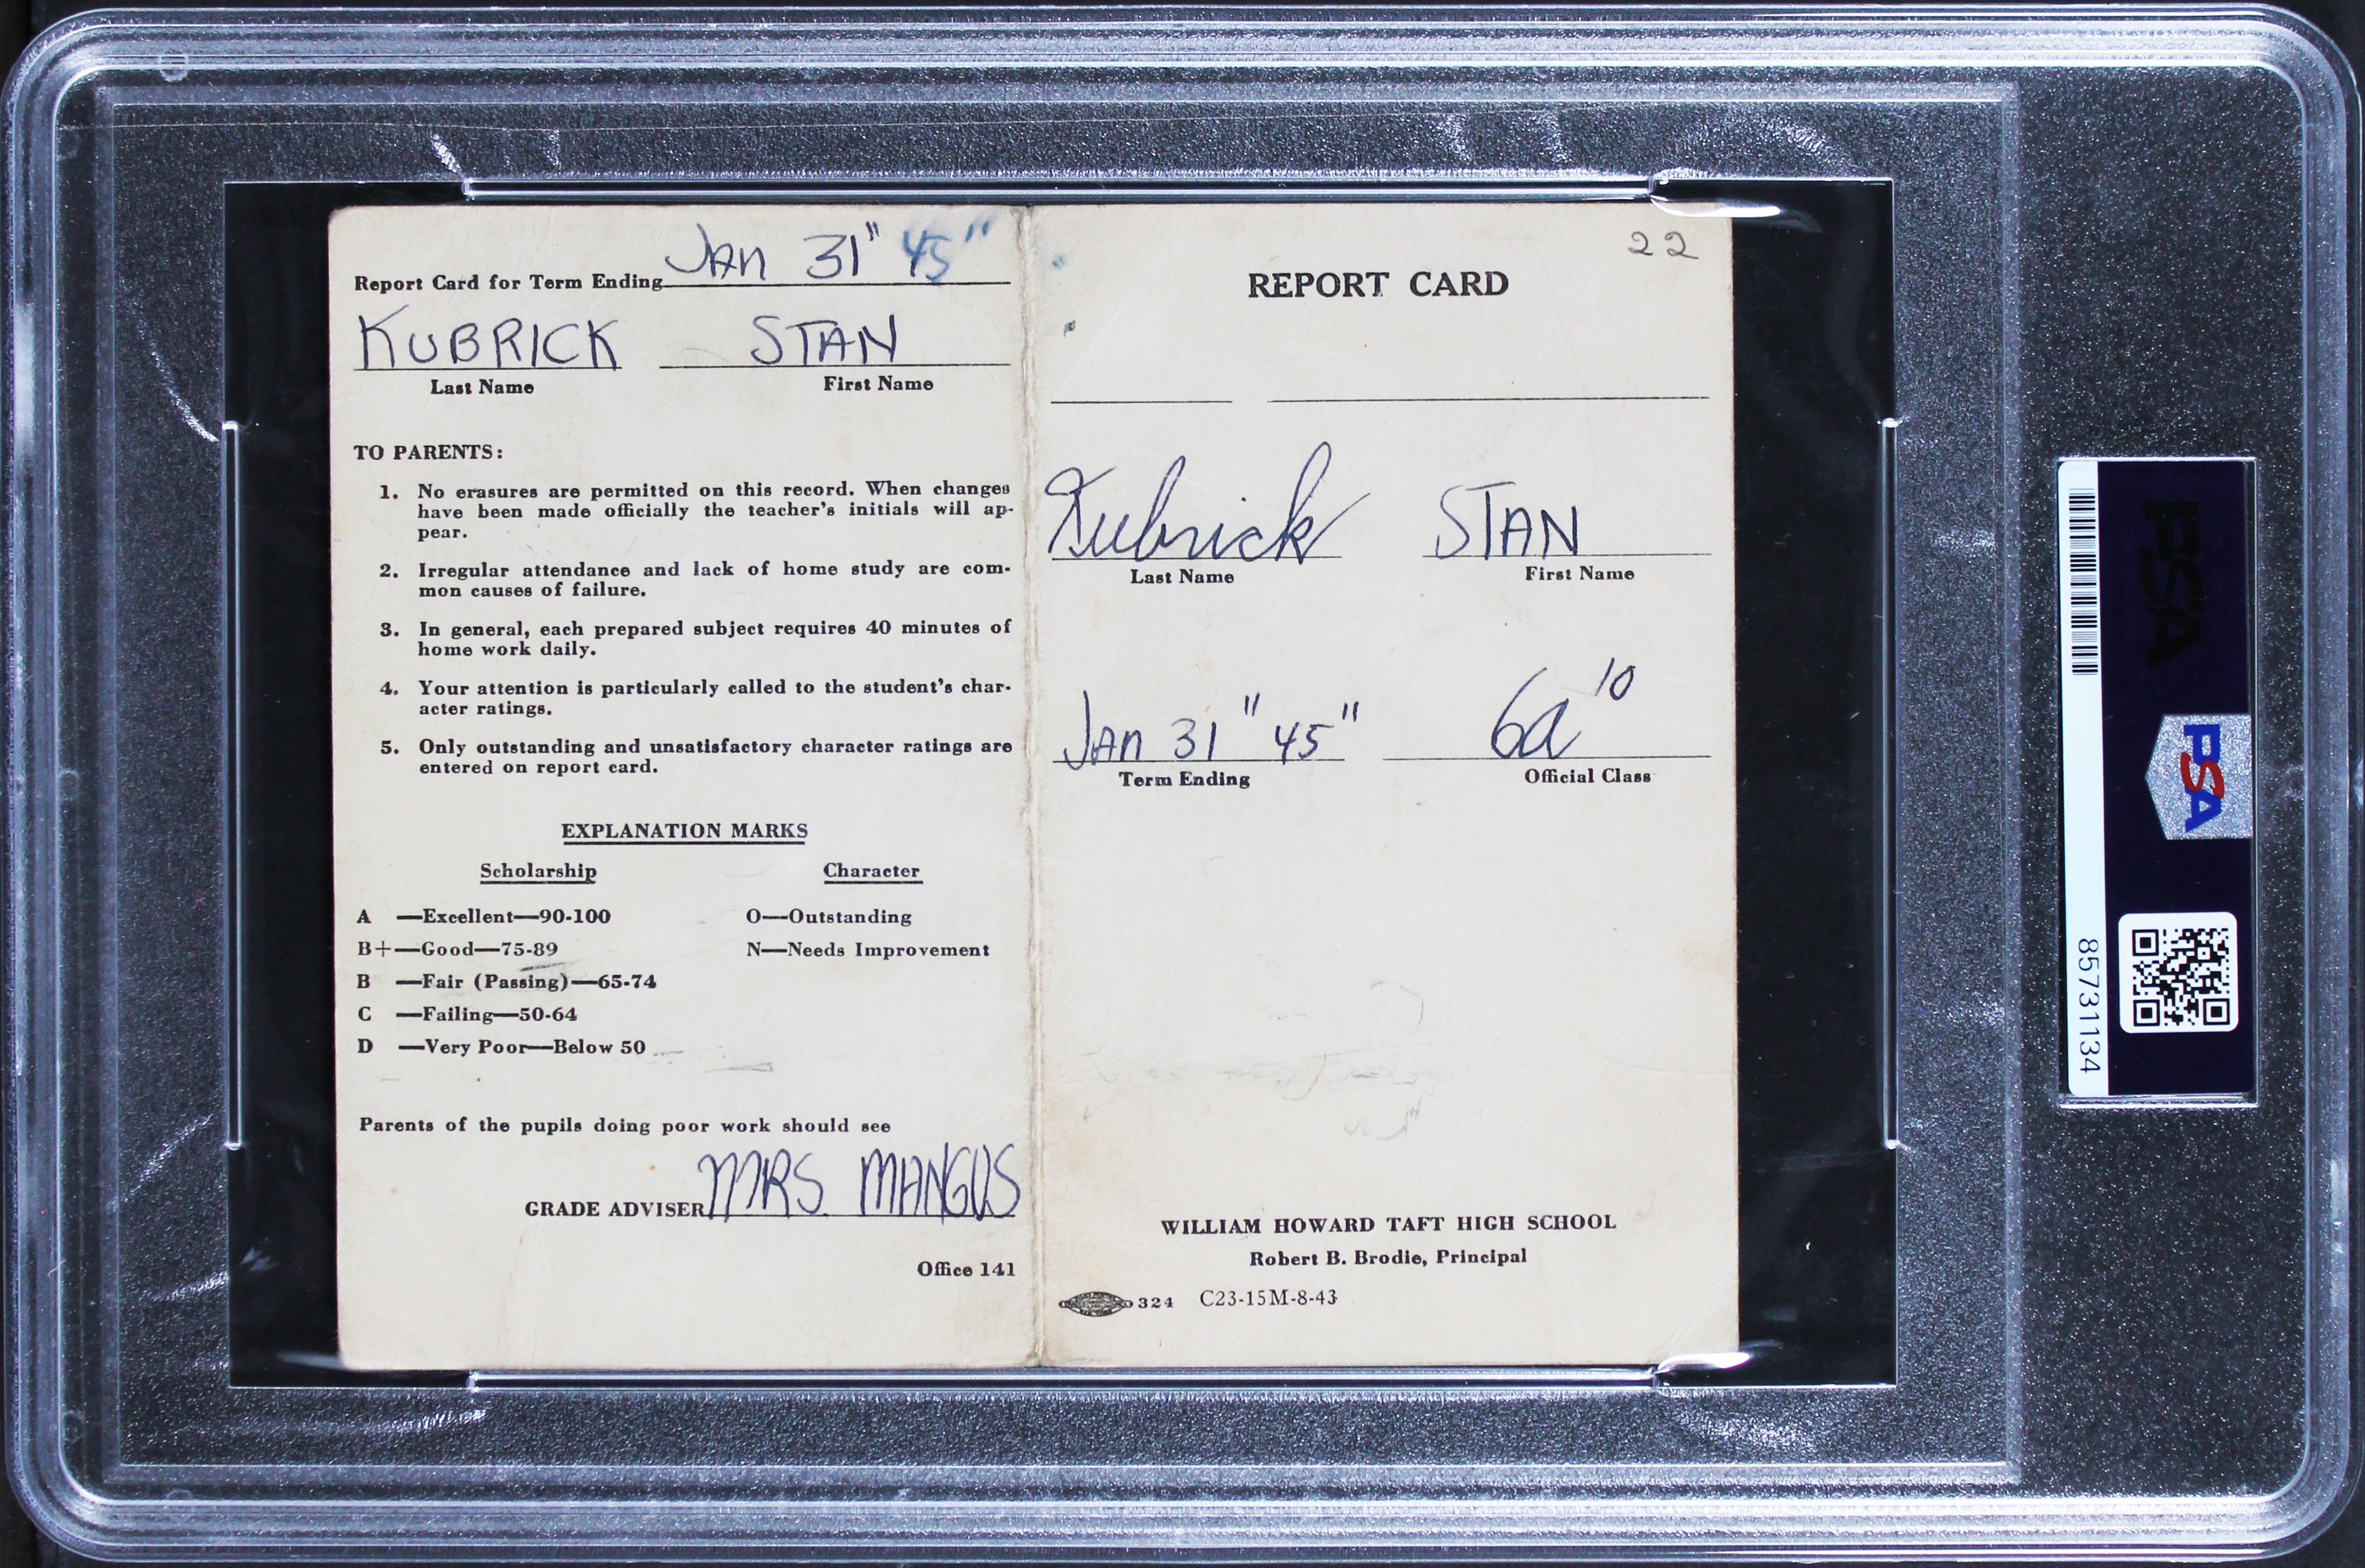 Report Card for Term Ending Jan 31" 45"
KUBRICK STAN
Last Name First Name
TO PARENTS:
1. No erasures are permitted on this record. When changes
have been made officially the teacher's initials will ap-
pear.
2. Irregular attendance and lack of home study are com-
mon causes of failure.
3. In general, each prepared subject requires 40 minutes of
home work daily.
4. Your attention is particularly called to the student's char-
acter ratings.
5. Only outstanding and unsatisfactory character ratings are
entered on report card.
EXPLANATION MARKS
Scholarship Character
A —Excellent—90-100 O—Outstanding
B+—Good—75-89 N—Needs Improvement
B —Fair (Passing)—65-74
C —Failing—50-64
D —Very Poor—Below 50
Parents of the pupils doing poor work should see
GRADE ADVISER MRS. MANGUS
Office 141
22
REPORT CARD
Kubrick STAN
Last Name First Name
Jan 31" 45" 6a 10
Term Ending Official Class
WILLIAM HOWARD TAFT HIGH SCHOOL
Robert B. Brodie, Principal
324 C23-15M-8-43
PSA
PSA
85731134